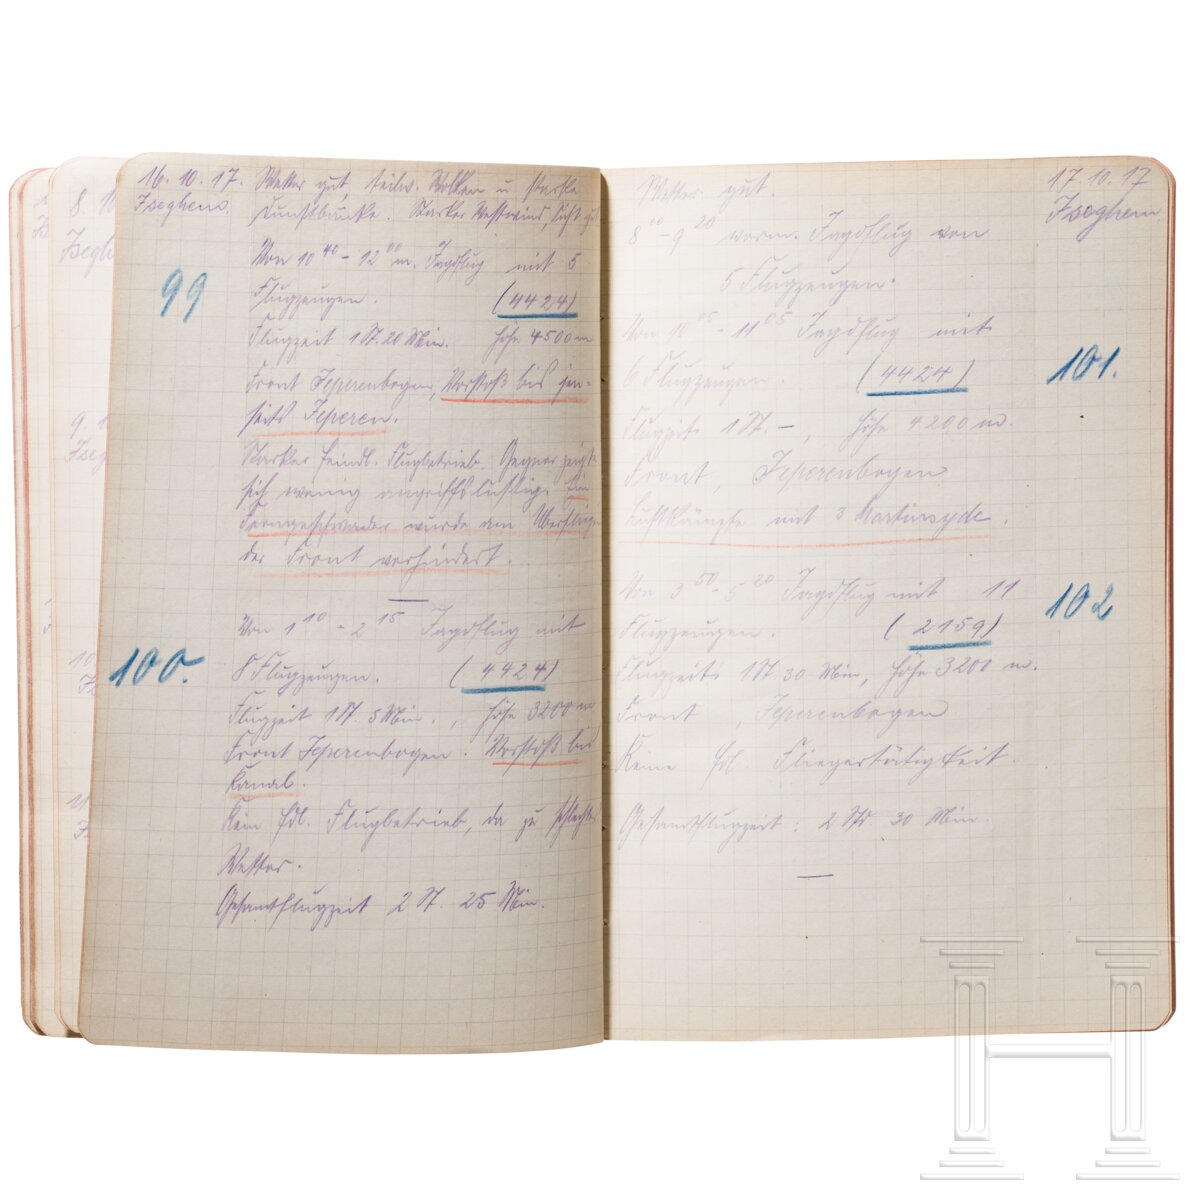 16.10.17. Wetter gut, teilw. Wolken u. starke
Iseghem. Dunstbänke. Starker Westwind, Sicht gut
Von 10⁴⁰ - 12⁰⁰ m. Jagdflug mit 5
99
Flugzeugen. (4424)
Flugzeit 1 St. 20 Min. Höhe 4500 m
Front Ieperenbogen, Vorstoß bis jen-
seits Ieperen.
Starker feindl. Flugbetrieb. Gegner zeigt
sich wenig angriffslustig. Ein
Ferngeschwader wurde am Überfliegen
der Front verhindert.
Von 1¹⁰ - 2¹⁵ Jagdflug mit
100. 8 Flugzeugen. (4424)
Flugzeit 1 St. 5 Min., Höhe 3200 m
Front Ieperenbogen. Vorstoß bis
Kanal.
Kein fdl. Flugbetrieb, da zu schlechtes
Wetter.
Gesamtflugzeit 2 St. 25 Min.
Wetter gut. 17.10.17
Iseghem
8⁰⁰ - 9²⁰ vorm. Jagdflug von
5 Flugzeugen.
Von 10⁰⁵ - 11⁰⁵ Jagdflug mit
6 Flugzeugen. (4424) 101.
Flugzeit 1 St. -, Höhe 4200 m.
Front, Ieperenbogen
Luftkämpfe mit 3 Martinsyde.
Von 3⁵⁰ - 5²⁰ Jagdflug mit 11
102
Flugzeugen. (2159)
Flugzeit 1 St. 30 Min, Höhe 3200 m.
Front, Ieperenbogen
Keine fdl. Fliegertätigkeit.
Gesamtflugzeit: 2 Std 30 Min.